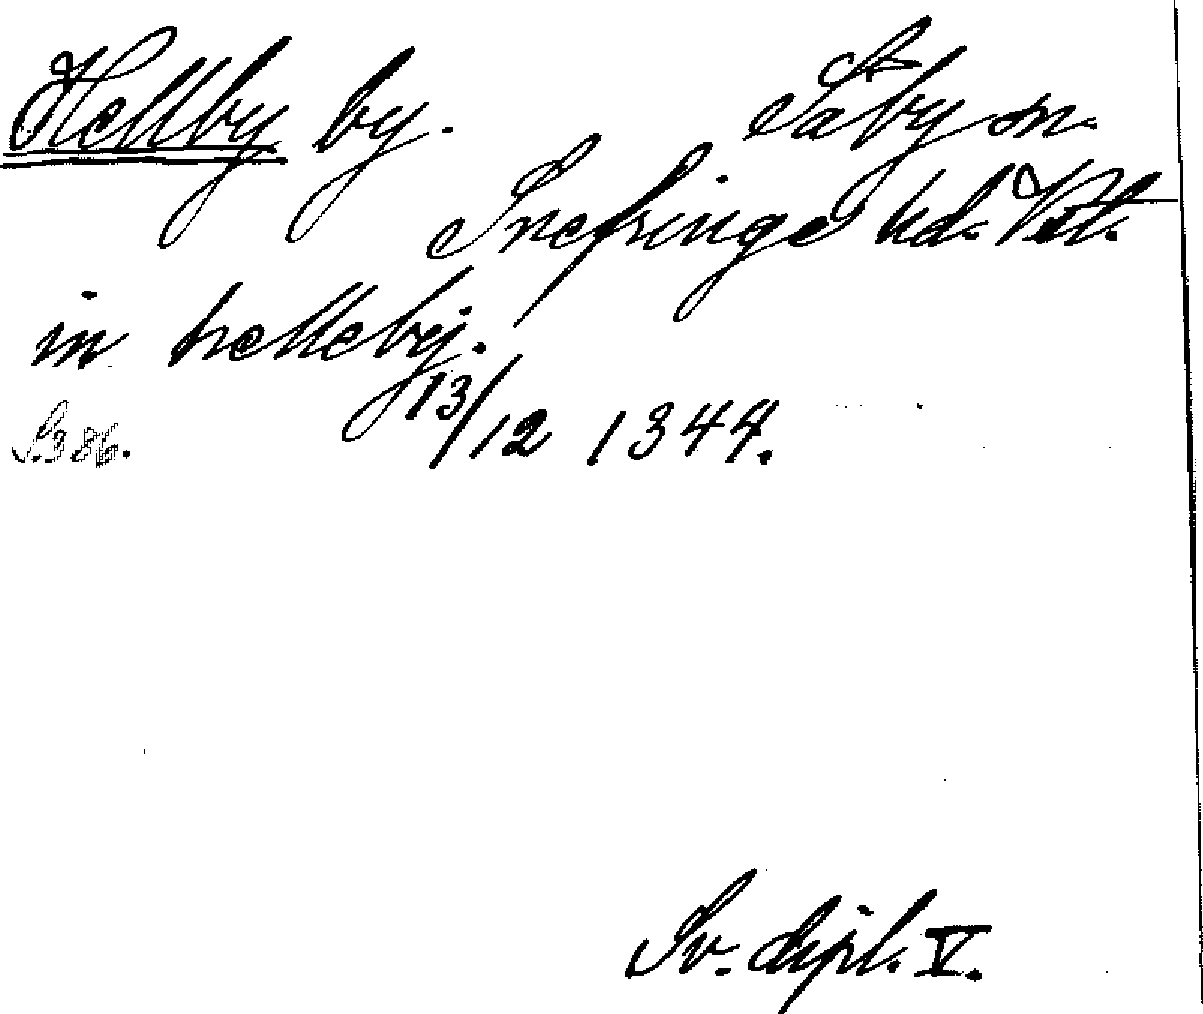 Hellby by. Säby sn.
Snefringe hd. Vstl.
in hælleby.
S. 386. 13/12 1344.
Sv. dipl. V.